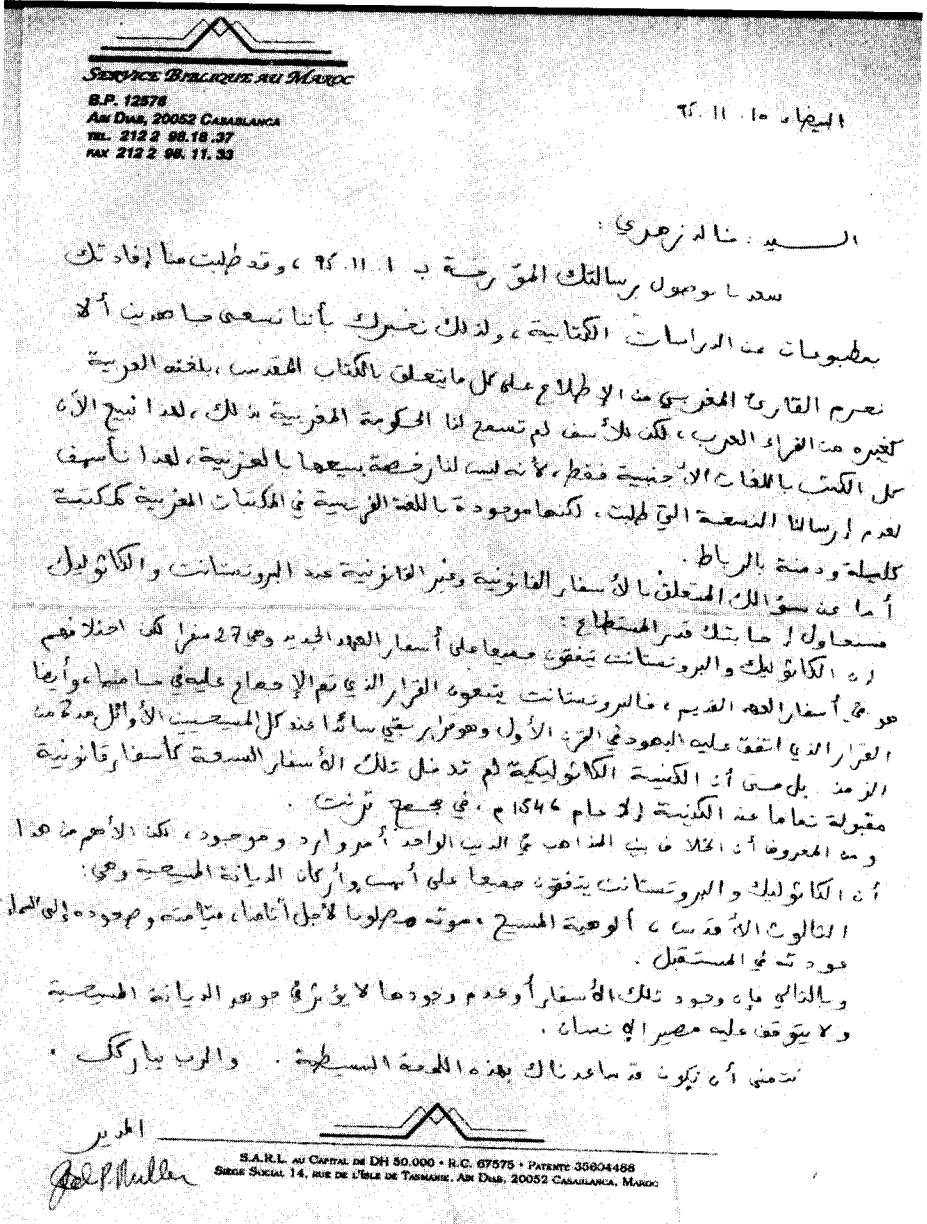 SERVICE BIBLIQUE AU MAROC
B.P. 12578
AIN DIAB, 20052 CASABLANCA
TEL. 212 2 98.18.37
FAX 212 2 98. 11. 33
البيضاء 10. 11. 95
الســيد : خالد زهري :
سعدنا بوصول رسالتك المؤرخة ب 1. 11. 95 ، وقد طلبت منا إفادتك
بمطبوعات عن الدراسات الكتابية ، ولذلك نخبرك بأننا نسعى جاهدين ألا
نحرم القارئ المغربي من الإطلاع على كل ما يتعلق بالكتاب المقدس ، بلغته العربية
كغيره من القراء العرب ، لكن للأسف لم تسمح لنا الحكومة المغربية بذلك ، لهذا نبيع الآن
كل الكتب باللغات الأجنبية فقط ، لأنه ليس لنا رخصة ببيعها بالعربية ، لهذا نأسف
لعدم إرسالنا النسخة التي طلبت ، لكنها موجودة باللغة الفرنسية في المكتبات المغربية كمكتبة
كليلة ودمنة بالرباط .
أما عن سؤالك المتعلق بالأسفار القانونية وغير القانونية عند البروتستانت والكاثوليك
سنحاول إجابتك قدر المستطاع :
إن الكاثوليك والبروتستانت يتفقون جميعا على أسفار العهد الجديد وهي 27 سفرا لكن اختلافهم
هو في أسفار العهد القديم ، فالبروتستانت يتبعون القرار الذي تم الإجماع عليه في جامنيا ، وأيضا
القرار الذي اتفق عليه اليهود في القرن الأول وهو قرار بقي سائدا عند كل المسيحيين الأوائل مدة من
الزمن بل حتى أن الكنيسة الكاثوليكية لم تدخل تلك الأسفار السبعة كأسفار قانونية
مقبولة تماما عند الكنيسة إلا عام 1546 م ، في مجمع ترنت .
ومن المعروف أن الخلاف بين المذاهب في الدين الواحد أمر وارد وموجود ، لكن الأهم من هذا
أن الكاثوليك والبروتستانت يتفقون جميعا على أسس وأركان الديانة المسيحية وهي :
الثالوث الأقدس ، ألوهية المسيح ، موته مصلوبا لأجل آثامنا ، قيامته وصعوده إلى السماء
عودته في المستقبل .
وبالتالي فإن وجود تلك الأسفار أو عدم وجودها لا يؤثر في جوهر الديانة المسيحية
ولا يتوقف عليه مصير الإنسان .
نتمنى أن نكون قد ساعدناك بهذه اللمحة البسيطة . والرب يباركك .
المدير
S.A.R.L. AU CAPITAL DE DH 50.000 • R.C. 67575 • PATENTE 35604488
SIEGE SOCIAL 14, RUE DE L'ISLE DE TASMANIE, AIN DIAB, 20052 CASABLANCA, MAROC